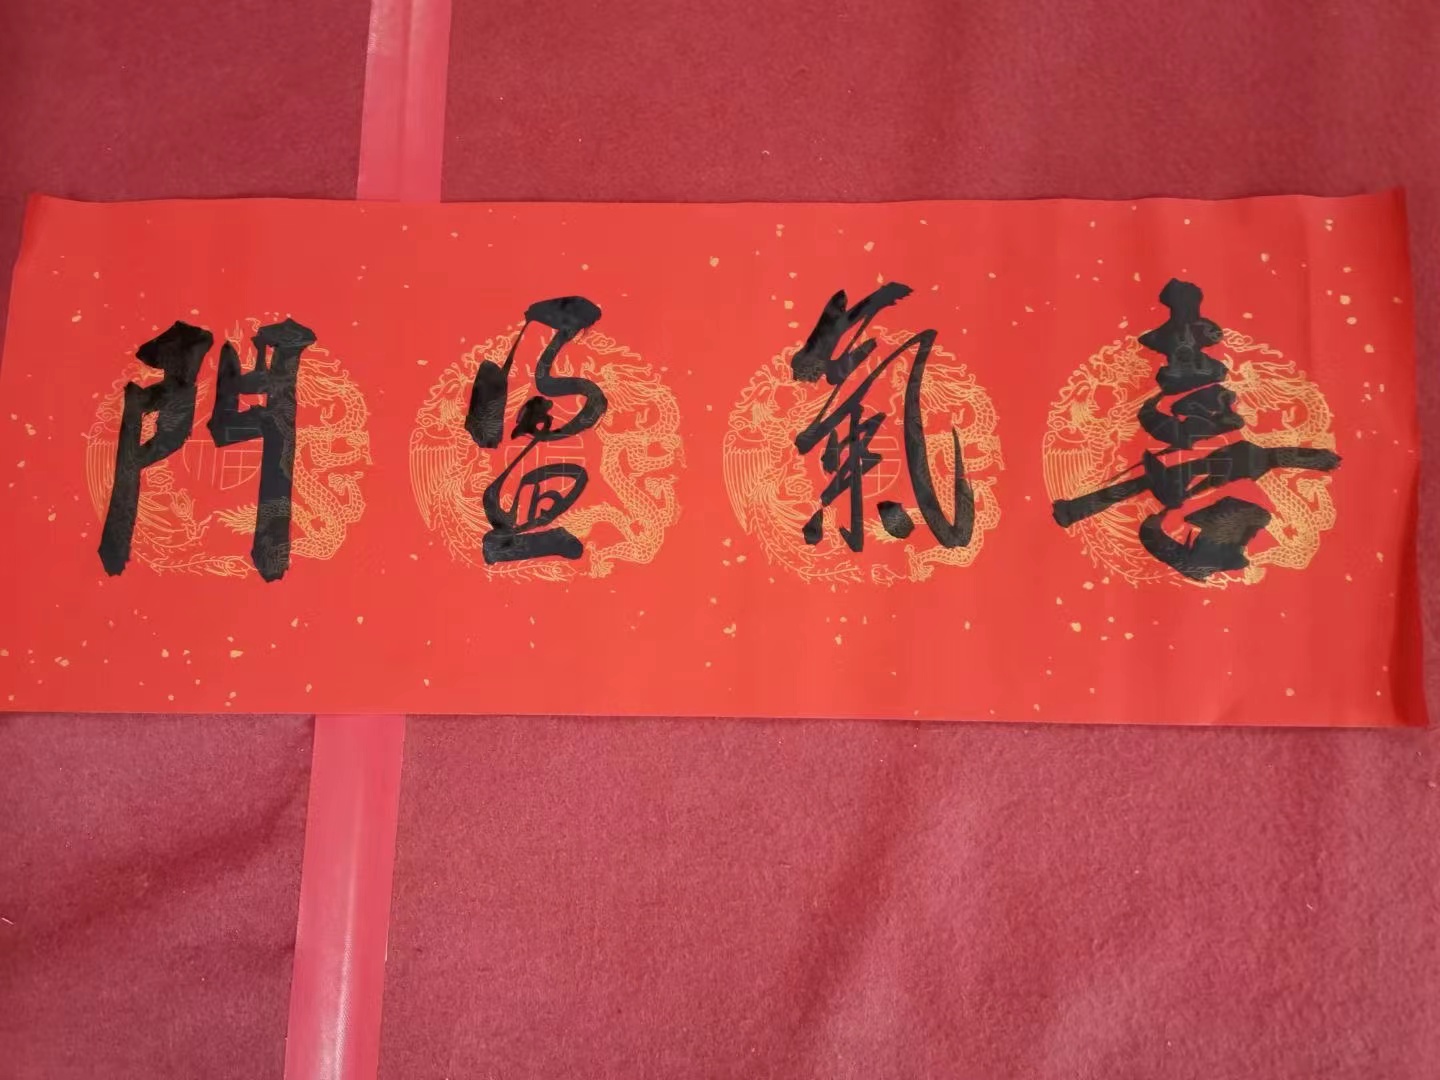 喜氣盈門